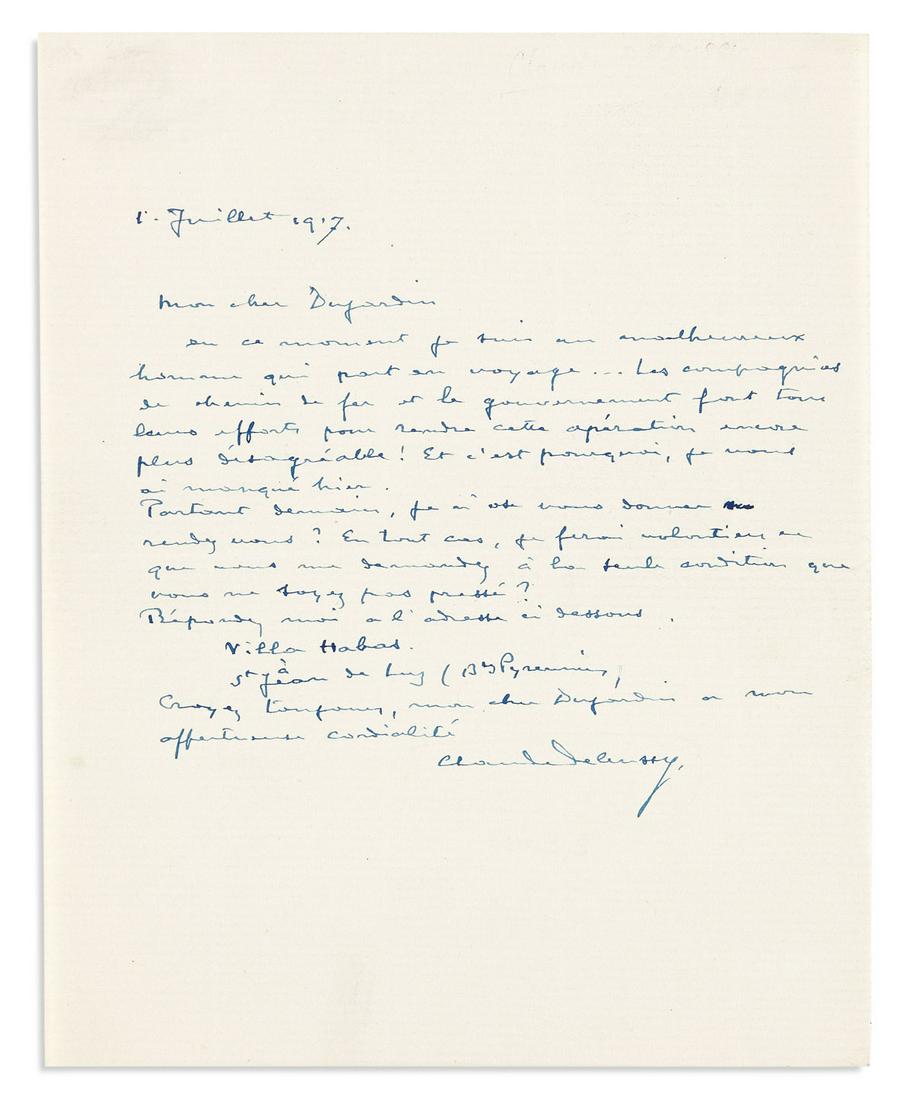 1. Juillet 1917.
Mon cher Dujardin
en ce moment je suis un malheureux
homme qui part en voyage... Les compagnies
de chemin de fer et le gouvernement font tous
leurs efforts pour rendre cette opération encore
plus désagréable! Et c'est pourquoi, je vous
ai manqué hier.
Partant demain, je n'ose vous donner
rendez vous? En tout cas, je ferai volontiers ce
que vous me demandez à la seule condition que
vous ne soyez pas pressé?
Répondez moi à l'adresse ci dessous.
Villa Habas.
à
St Jean de Luz (Bses Pyrennées)
Croyez toujours, mon cher Dujardin à mon
affectueuse cordialité
Claude Debussy.